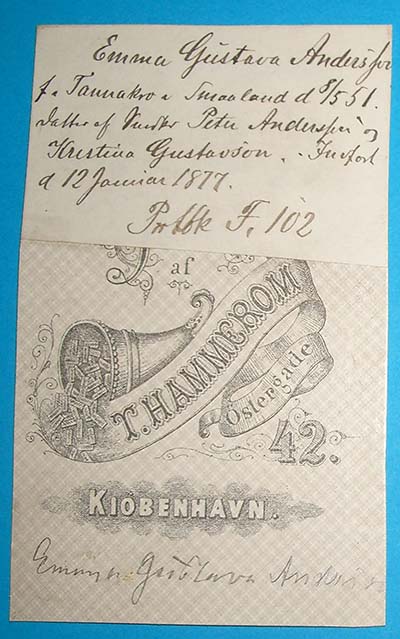 Emma Gustava Andersson
f. Tannakro i Smaaland d 8/5 51.
Datter af Peter Andersson og
Kristina Gustavson. Indført
d 12 Januar 1877.
Prtbk F. 102
af
T. HAMMEROM
Östergade
42.
KIOBENHAVN.
Emma Gustava Anders